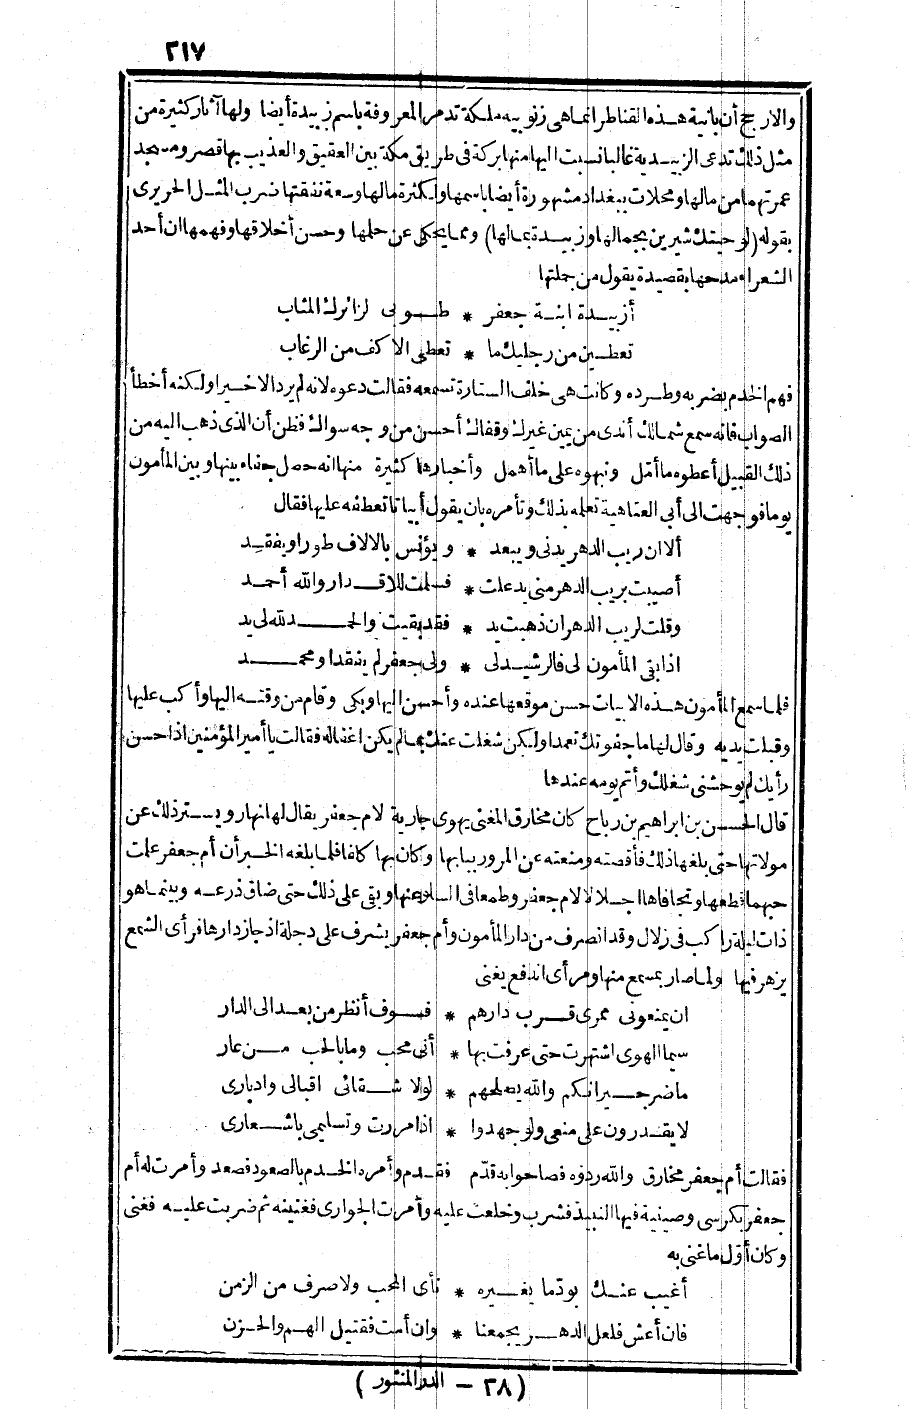 ٢١٧
والارجح أن بانية هذه القناطر انما هى زنوبيه ملكة تدمر المعروفة باسم زبيدة أيضا ولها آثار كثيرة من
مثل ذلك تدعى الزبيدية غالبا نسبت اليها منها بركة فى طريق مكة بين العقيق والعذيب بها قصر ومسجد
عمرتهما من مالها ومحلات ببغداد مشهورة أيضا باسمها ولكثرة مالها وسعة نفقتها ضرب المثل الحريرى
بقوله (لو حبتك شيرين بجمالها وزبيدة بمالها) ومما يحكى عن حلمها وحسن أخلاقها وفهمها ان أحد
الشعراء مدحها بقصيدة يقول من جملتها
أزبيدة ابنة جعفر * طوبى لزائرك المثاب
تعطين من رجليك ما * تعطى الاكف من الرغاب
فهم الخدم بضربه وطرده وكانت هى خلف الستارة تسمعه فقالت دعوه لانه لم يرد الا خيرا ولكنه أخطأ
الصواب فانه سمع شمالك أندى من يمين غيرك وقفاك أحسن من وجه سواك فظن أن الذى ذهب اليه من
ذلك القبيل أعطوه ما أمّل ونبهوه على ما أهمل وأخبارها كثيرة منها انه حصل جفاء بينها وبين المأمون
يوما فوجهت الى أبى العتاهية تعلمه بذلك وتأمره بان يقول أبياتا تعطفه عليها فقال
ألا ان ريب الدهر يدنى ويبعد * ويؤنس بالالاف طورا ويفقد
أصيبت بريب الدهر منى يد علت * فسلمت للاقدار والله أحمد
وقلت لريب الدهر ان ذهبت يد * فقد بقيت والحمد لله لى يد
اذا بقى المأمون لى فالرشيد لى * ولى جعفر لم يفقدا ومحمد
فلما سمع المأمون هذه الابيات حسن موقعها عنده وأحسن اليها وبكى وقام من وقته اليها وأكب عليها
وقبلت يديه وقال لها ما جفوتك تعمدا ولكن شغلت عنك بما لم يكن اغفاله فقالت يا أمير المؤمنين اذا حسن
رأيك لم يوحشنى شغلك وأتم يومه عندها
قال الحسن بن ابراهيم بن رباح كان مخارق المغنى يهوى جارية لام جعفر يقال لها نهار ويستر ذلك عن
مولاتها حتى بلغها ذلك فأقصته ومنعته عن المرور ببابها وكان بها كلفا فلما بلغه الخبر أن أم جعفر علمت
حبهما قطعها وتجافاها اجلالا لام جعفر وطمعا فى السلو عنها وبقى على ذلك حتى ضاق ذرعه وبينما هو
ذات ليلة راكب فى زلال وقد انصرف من دار المأمون وأم جعفر يشرف على دجلة اذ جاز دارها فرأى الشمع
يزهر فيها ولما صار بمسمع منها ومرأى اندفع يغنى
ان يمنعونى ممرى قرب دارهم * فسوف أنظر من بعد الى الدار
سيما الهوى اشتهرت حتى عرفت بها * أنى محب وما بالحب من عار
ما ضر جيرانكم والله يصلحهم * لولا شقائى اقبالى وادبارى
لا يقدرون على منعى ولو جهدوا * اذا مررت وتسليمى باشعارى
فقالت أم جعفر مخارق والله ردوه فصاحوا به قدّم فقدم وأمره الخدم بالصعود فصعد وأمرت له أم
جعفر بكرسى وصينية فيها النبيذ فشرب وخلعت عليه وأمرت الجوارى فغنينه ثم ضربت عليه فغنى
وكان أول ما غنى به
أغيب عنك بودّ ما يغيره * نأى المحب ولا صرف من الزمن
فان أعش فلعل الدهر يجمعنا * وان أمت فقتيل الهم والحزن
(٢٨ – الدر المنثور)